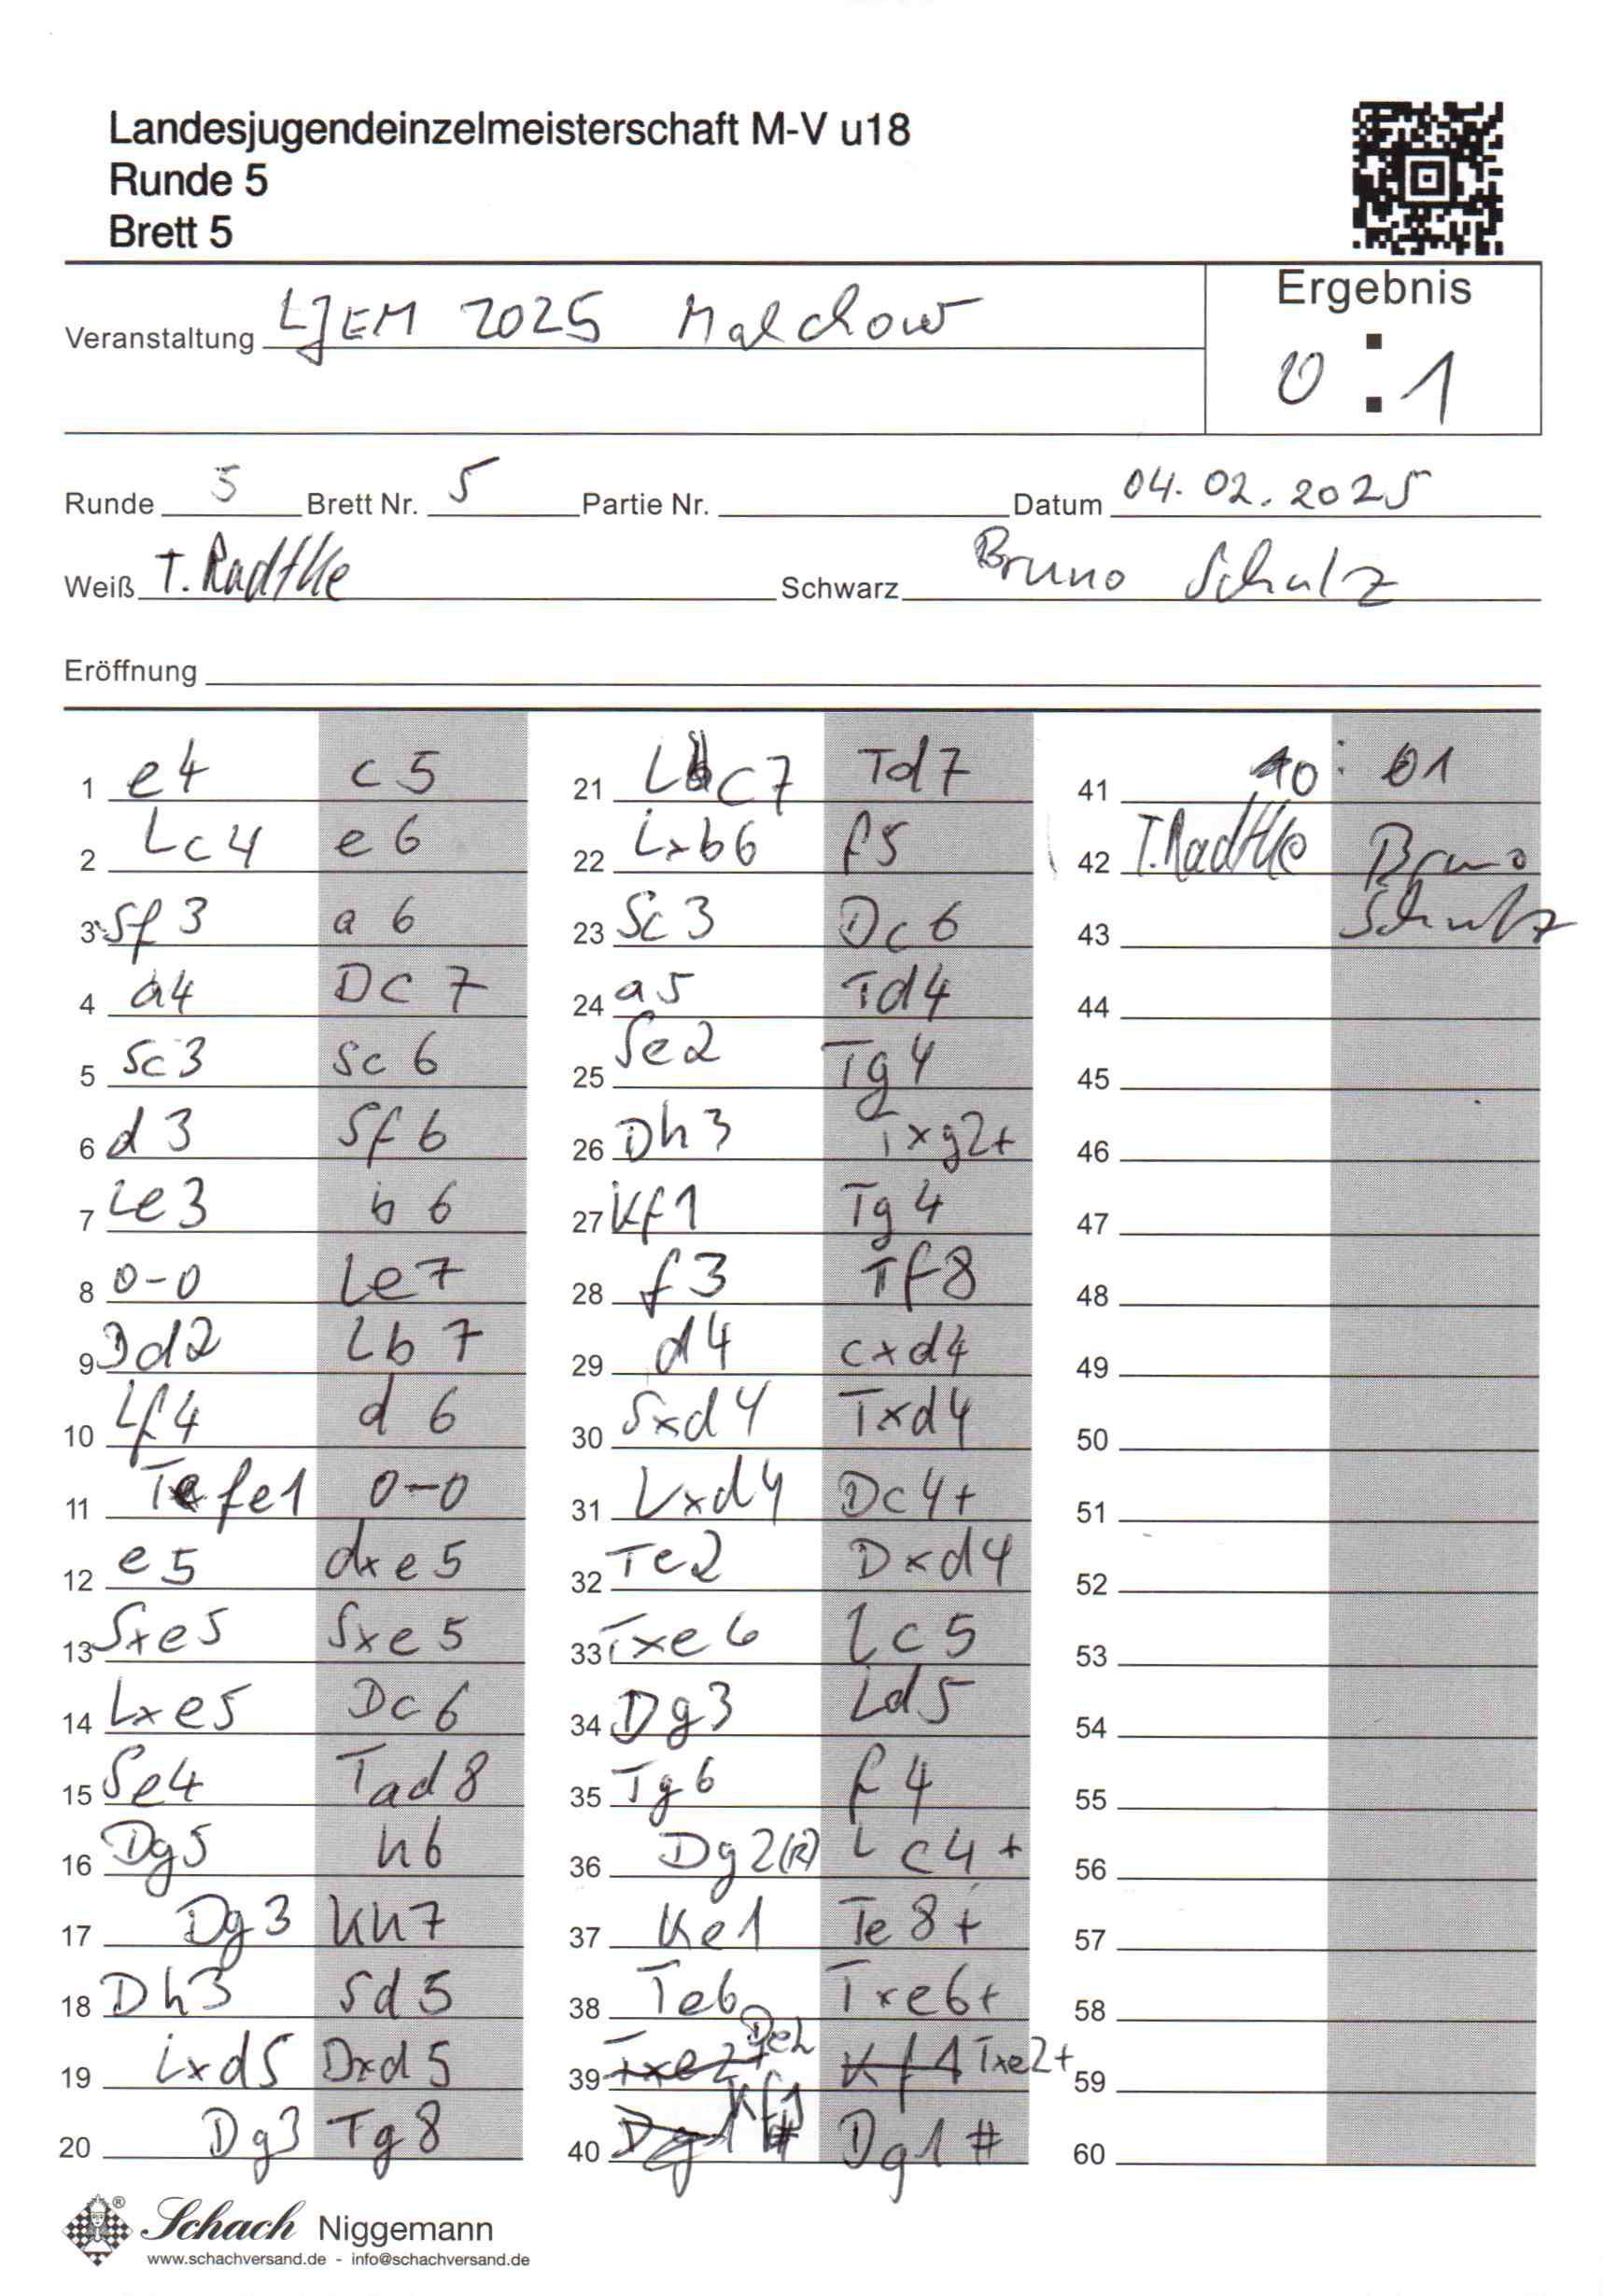 Landesjugendeinzelmeisterschaft M-V u18
Runde 5
Brett 5
Veranstaltung LJEM 2025 Malchow
Ergebnis
0 : 1
Runde 5 Brett Nr. 5 Partie Nr. Datum 04.02.2025
Weiß T. Radtke Schwarz Bruno Schulz
Eröffnung
1 e4 c5
2 Lc4 e6
3 Sf3 a6
4 a4 Dc7
5 Sc3 Sc6
6 d3 Sf6
7 Le3 b6
8 0-0 Le7
9 Dd2 Lb7
10 Lf4 d6
11 Tfe1 0-0
12 e5 dxe5
13 Sxe5 Sxe5
14 Lxe5 Dc6
15 Se4 Tad8
16 Dg5 h6
17 Dg3 Kh7
18 Dh3 Sd5
19 Lxd5 Dxd5
20 Dg3 Tg8
21 Lc7 Td7
22 Lxb6 f5
23 Sc3 Dc6
24 a5 Td4
25 Se2 Tg4
26 Dh3 Txg2+
27 Kf1 Tg4
28 f3 Tf8
29 d4 cxd4
30 Sxd4 Txd4
31 Lxd4 Dc4+
32 Te2 Dxd4
33 Txe6 Lc5
34 Dg3 Ld5
35 Tg6 f4
36 Dg2(R) Lc4+
37 Ke1 Te8+
38 Te6 Txe6+
39 Txe2+ De2 Kf1 Txe2+
40 Dg1# Kf1 Dg1#
41 0 : 1
42 T. Radtke Bruno
43 Schulz
44
45
46
47
48
49
50
51
52
53
54
55
56
57
58
59
60
Schach Niggemann
www.schachversand.de - info@schachversand.de